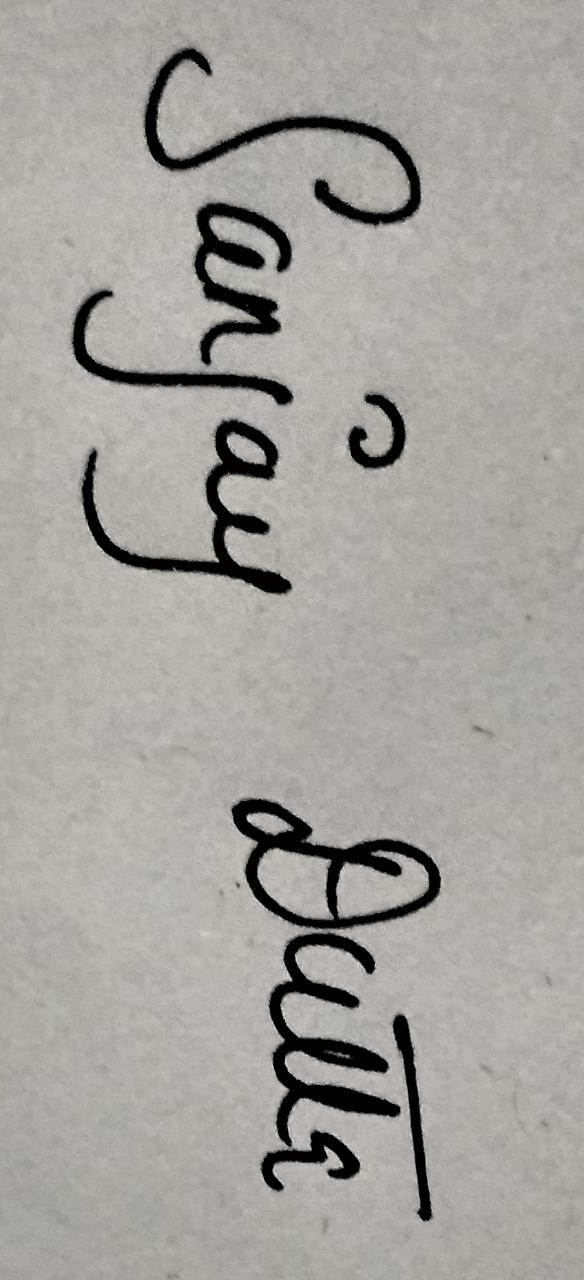 Sanjay Dutta